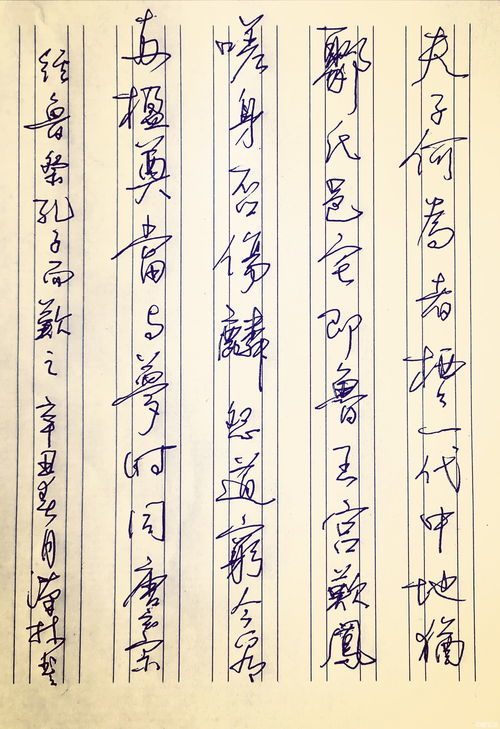 夫子何為者栖々一代中地猶
鄹氏邑宅即魯王宮歎鳳
嗟身否傷麟怨道窮今看
兩楹奠當与夢時同唐玄宗
經魯祭孔子而歎之 辛丑春月林書